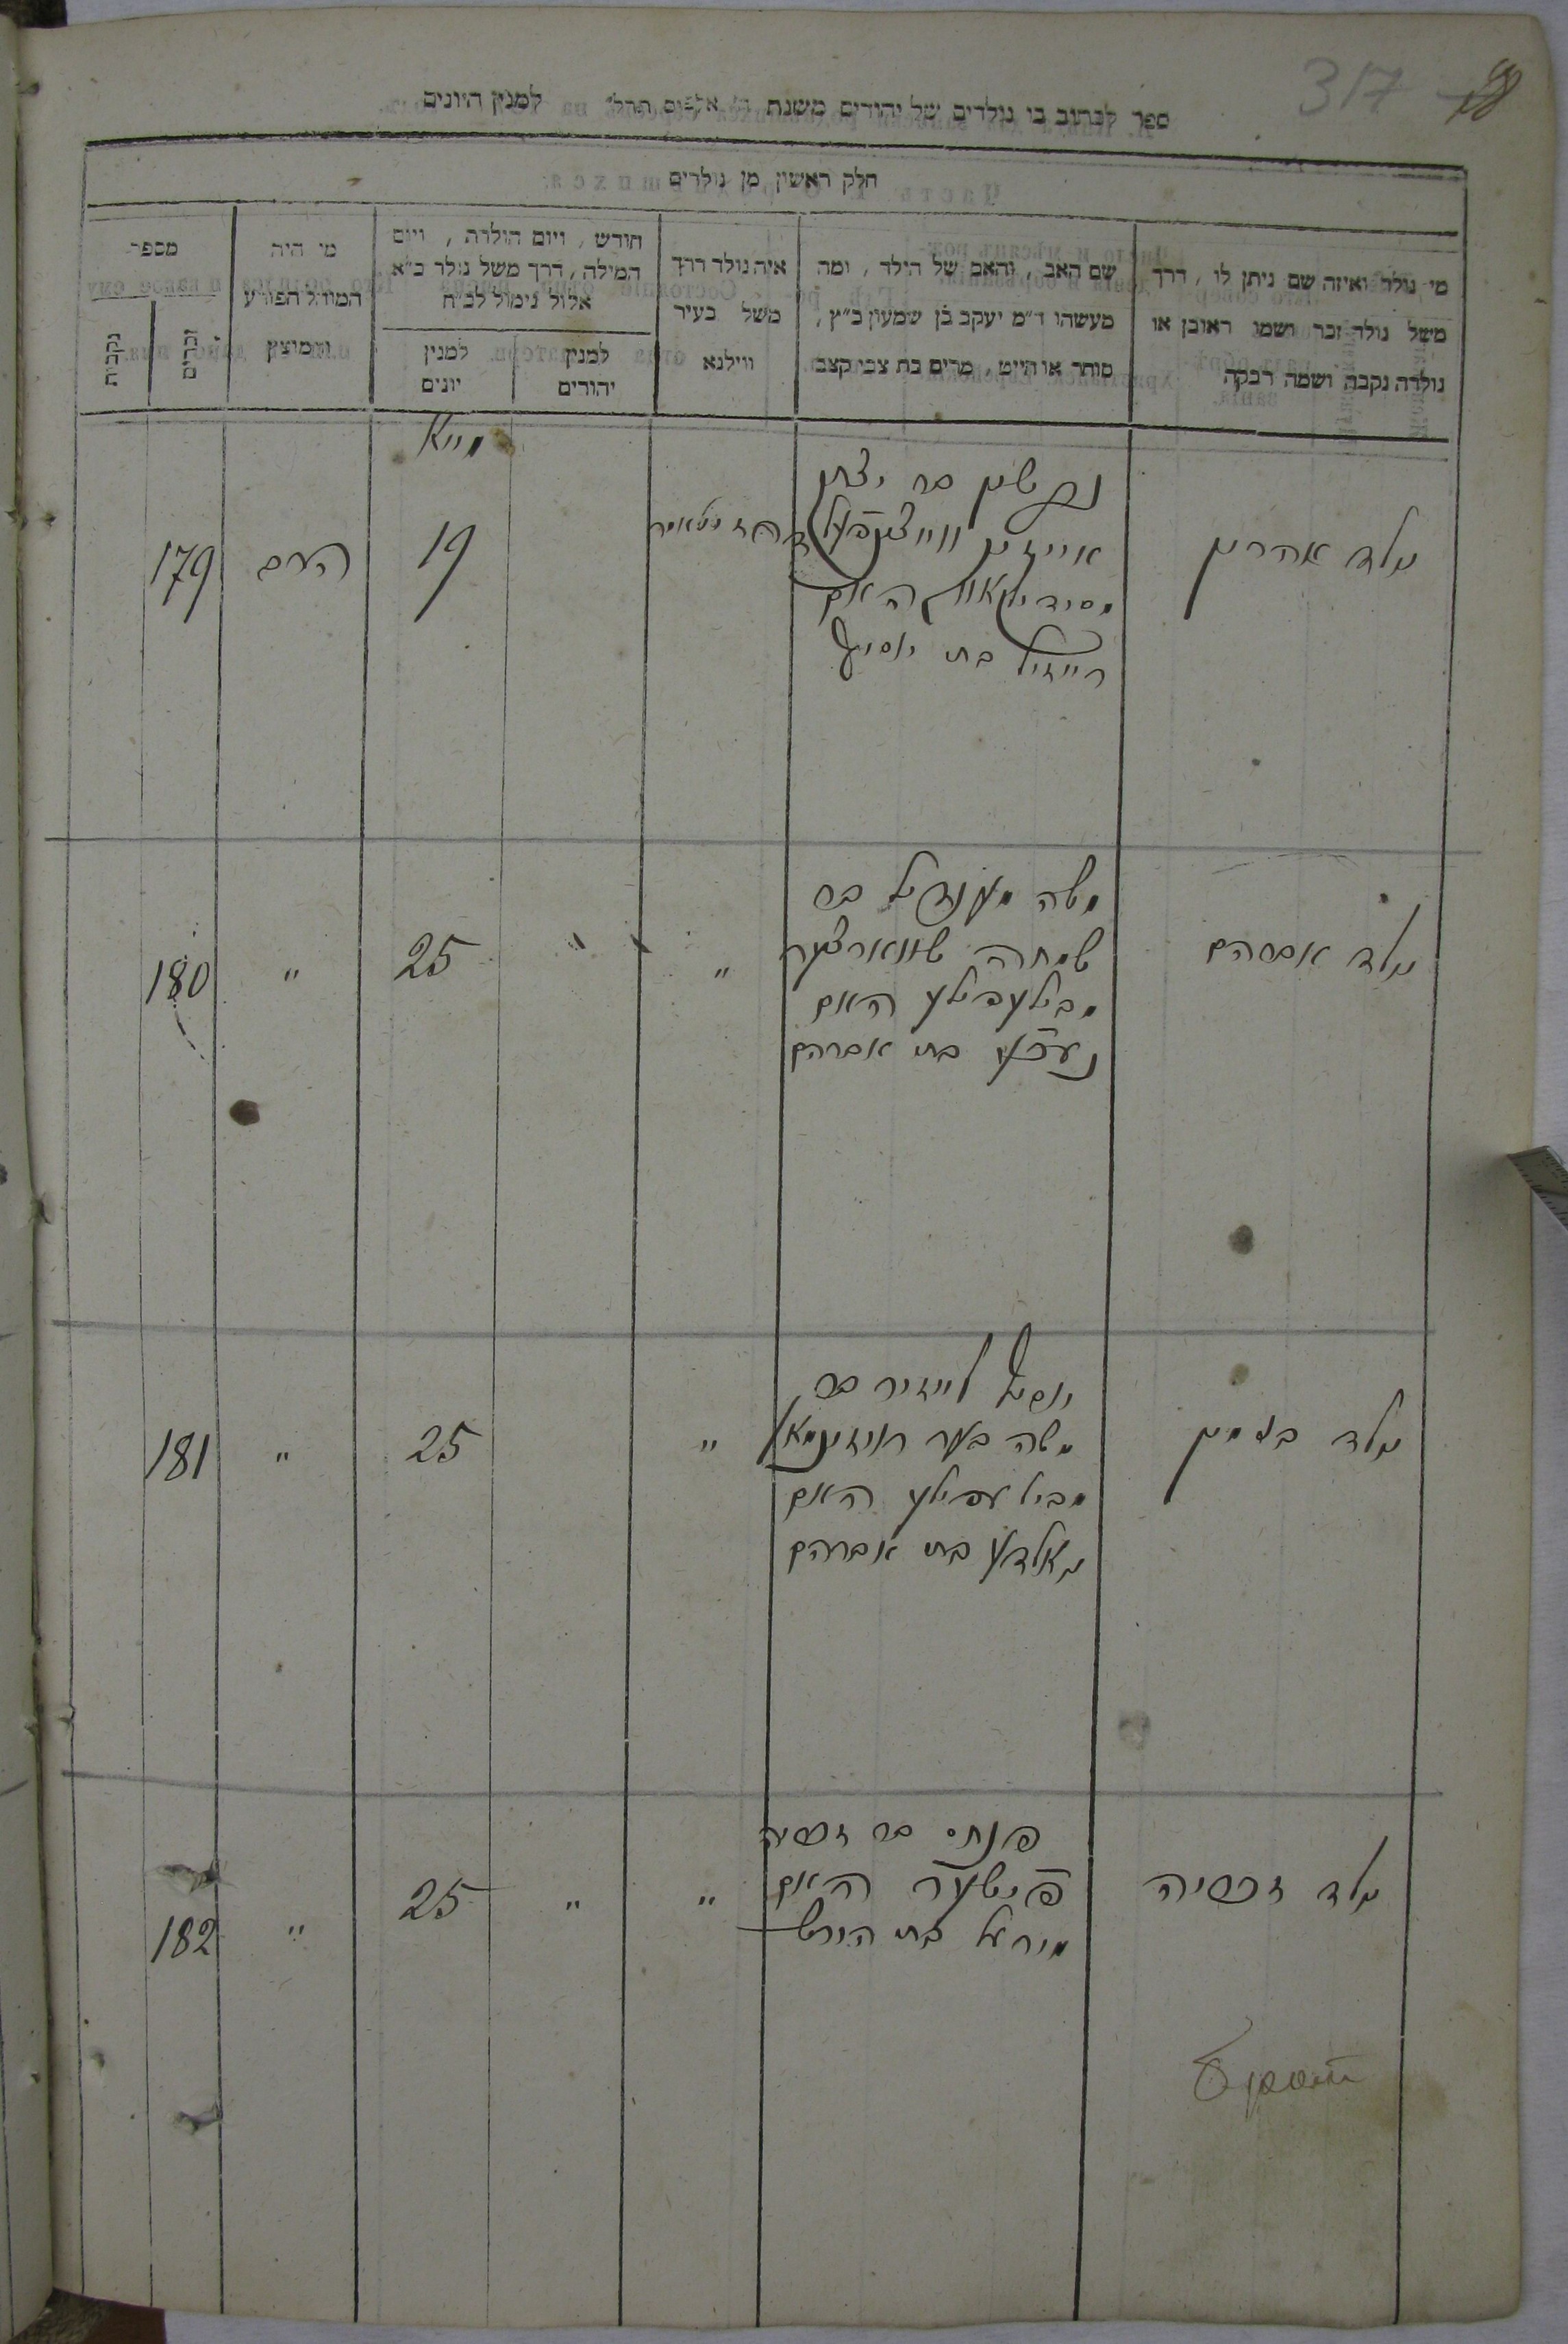 317
ספר לכתוב בו נולדים של יהודים משנת ה׳ אלפים תרל״ למנין היונים
חלק ראשון מן נולדים
מי נולד ואיזה שם ניתן לו, דרך
משל נולד זכר ושמו ראובן או
נולדה נקבה ושמה רבקה
שם האב, והאם של הילד, ומה
מעשהו ד״מ יעקב בן שמעון כ״ץ,
סוחר או חייט, מרים בת צבי קצב
איה נולד דרך
משל בעיר
ווילנא
חודש, ויום הולדת, ויום
המילה, דרך משל נולד כ״א
אלול נימול לכ״ח
למנין
יהודים
למנין
יונים
מי היה
המוהל הפורע
והמוצץ
מספר
זכרים
נקבות
מייא
נולד אהרון
בר יצחק
האם
רייזיל בת יוסיף
19
179
נולד אברהם
משה מענדיל בר
שמחה שווארצער
מבילעפילע האם
בת אברהם
"
25
"
180
נולד בנימין
יוסיף לייזיר בר
משה בער רויזינמאן
מבילעפילע האם
גאלדע בת אברהם
"
25
"
181
נולד זרחיה
פנחס בר זרחיה
פישער האם
מירעל בת הירש
"
"
25
"
182